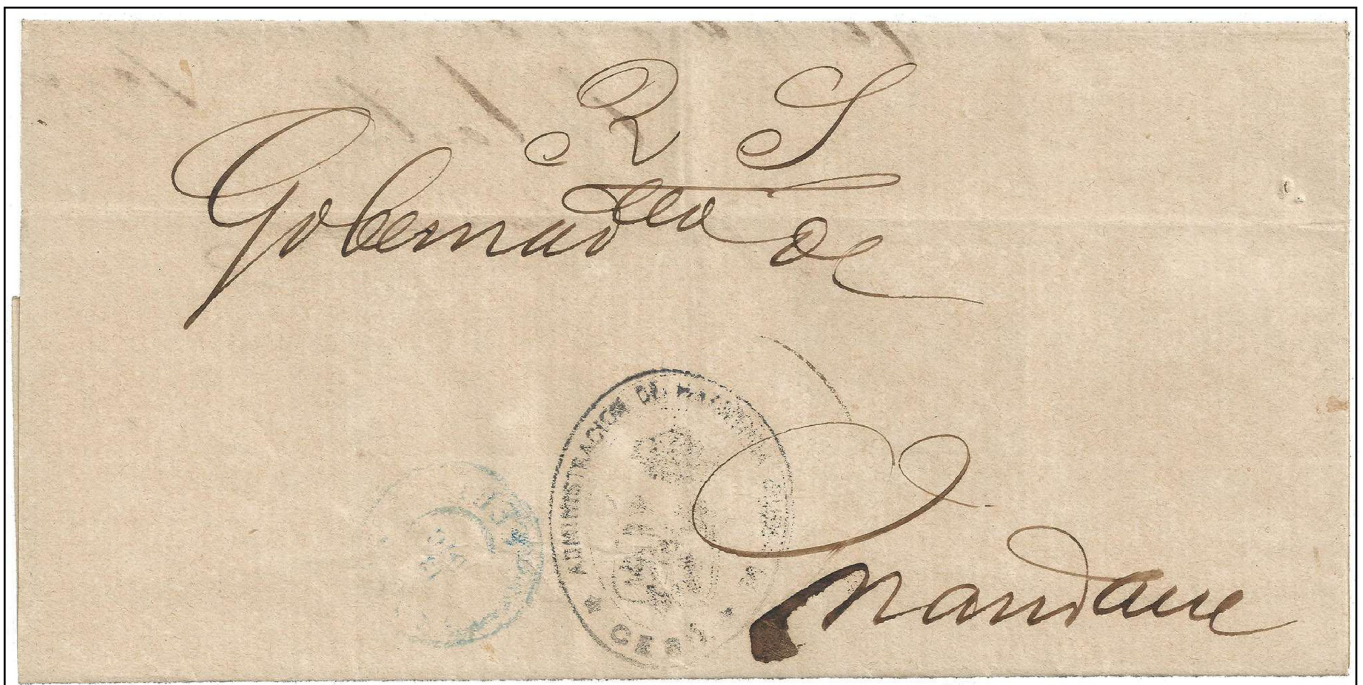 R S
Gobernadllo de
Mandaue
ADMINISTRACION DE HACIENDA
CEBU